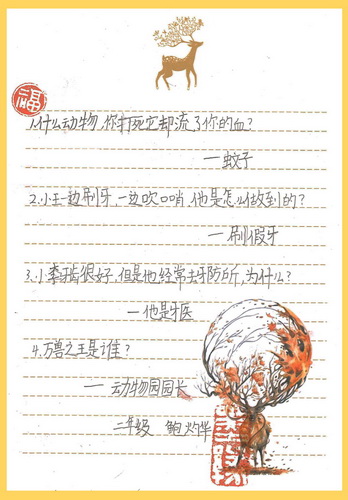 福
1.什么动物,你打死它却流了你的血?
—蚊子
2.小王一边刷牙,一边吹口哨,他是怎么做到的?
—刷假牙
3.小李牙齿很好,但是他经常去牙防所,为什么?
—他是牙医
4.万兽之王是谁?
—动物园园长
二年级 鲍灼华